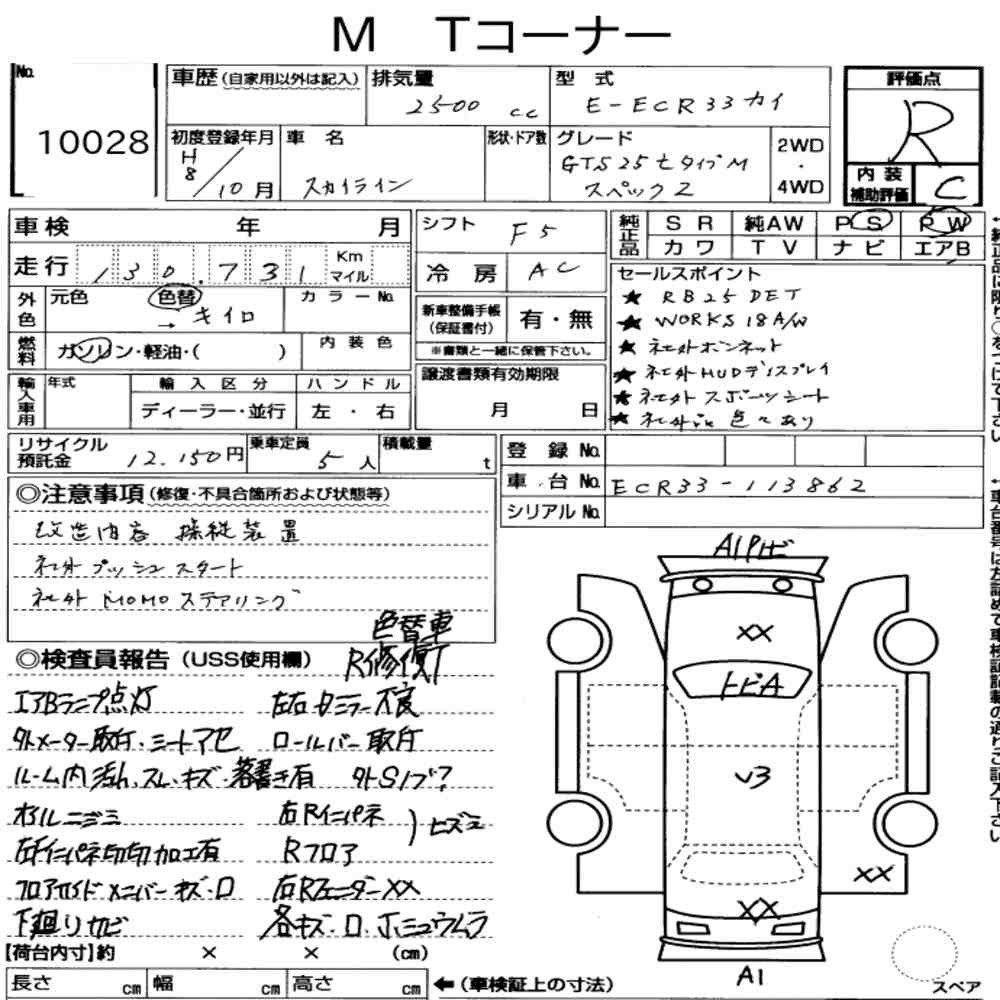 M Tコーナー
No.
10028
車歴(自家用以外は記入)
排気量
2500 cc
型 式
E-ECR33カイ
評価点
R
初度登録年月
H8/10月
車 名
スカイライン
形状・ドア数
グレード
GTS25tタイプM
スペック2
2WD
・
4WD
内 装
補助評価
C
車検 年 月
走行 130.731 Km マイル
シフト F5
冷 房 AC
純正品
S R 純AW P S P W
カ ワ T V ナ ビ エアB
外色
元色 色替 → キイロ
カ ラ ー No.
新車整備手帳
(保証書付)
有・無
※書類と一緒に保管下さい。
燃料
ガソリン・軽油・( )
内 装 色
セールスポイント
★ RB25DET
★ WORKS 18A/W
★ 社外ボンネット
★ 社外HUDディスプレイ
★ 社外スポーツシート
★ 社外品色々あり
輸入車用
年式
輸 入 区 分
ディーラー・並行
ハ ン ド ル
左 ・ 右
譲渡書類有効期限
月 日
リサイクル
預託金
12.150円
乗車定員
5人
積載量
t
登 録 No.
車 台 No. ECR33-113862
シリアル No.
◎注意事項(修復・不具合箇所および状態等)
改造内容 操縦装置
社外プッシュスタート
社外MOMOステアリング
色替車
◎検査員報告(USS使用欄)
R修復
エアBランプ点灯
左右 不良
外メーター取付.シートアセ
ロールバー取付
ルーム内 スレ・キズ・落書き有
外Sノブ?
オイルニジミ
右Rインパネ
ヒズミ
加工有
Rフロア
メンバーキズ・
右RフェンダーXX
下廻りサビ
各キズ・
【荷台内寸】約 × × (cm)
長さ cm 幅 cm 高さ cm
←(車検証上の寸法)
A1
XX
トビA
V3
XX
XX
A1
スペア
←純正品に限り○をつけて下さい
←車台番号は左詰めで車検証記載の通りご記入下さい